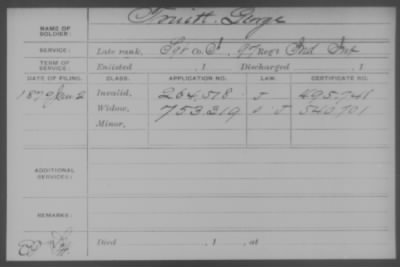 NAME OF SOLDIER: Truitt, George
SERVICE: Late rank, Co. 97 Reg't Ind Inf
TERM OF SERVICE: Enlisted , 1 Discharged , 1
DATE OF FILING. CLASS. APPLICATION NO. LAW. CERTIFICATE NO.
1879 Jan 2 Invalid, 264,518 495,741
Widow, 753,319 540,701
Minor,
ADDITIONAL SERVICES:
REMARKS:
Died , 1 , at